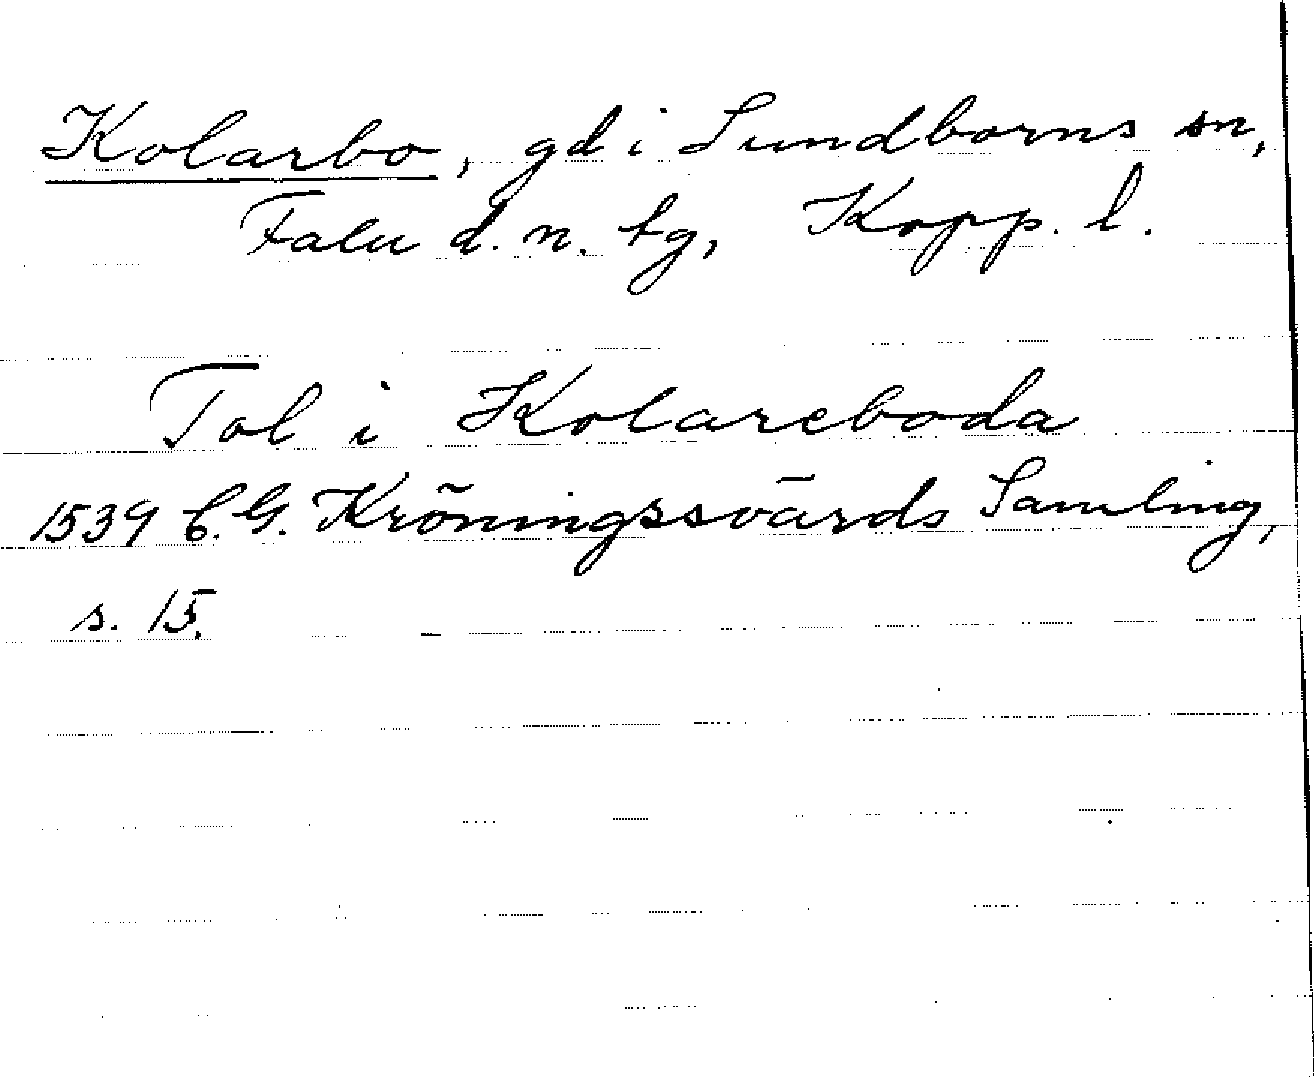 Kolarbo, gd i Sundborns sn,
Falu d. n. tg, Kopp. l.
Tol i Kolareboda
1539 C. G. Kröningssvärds Samling,
s. 15.